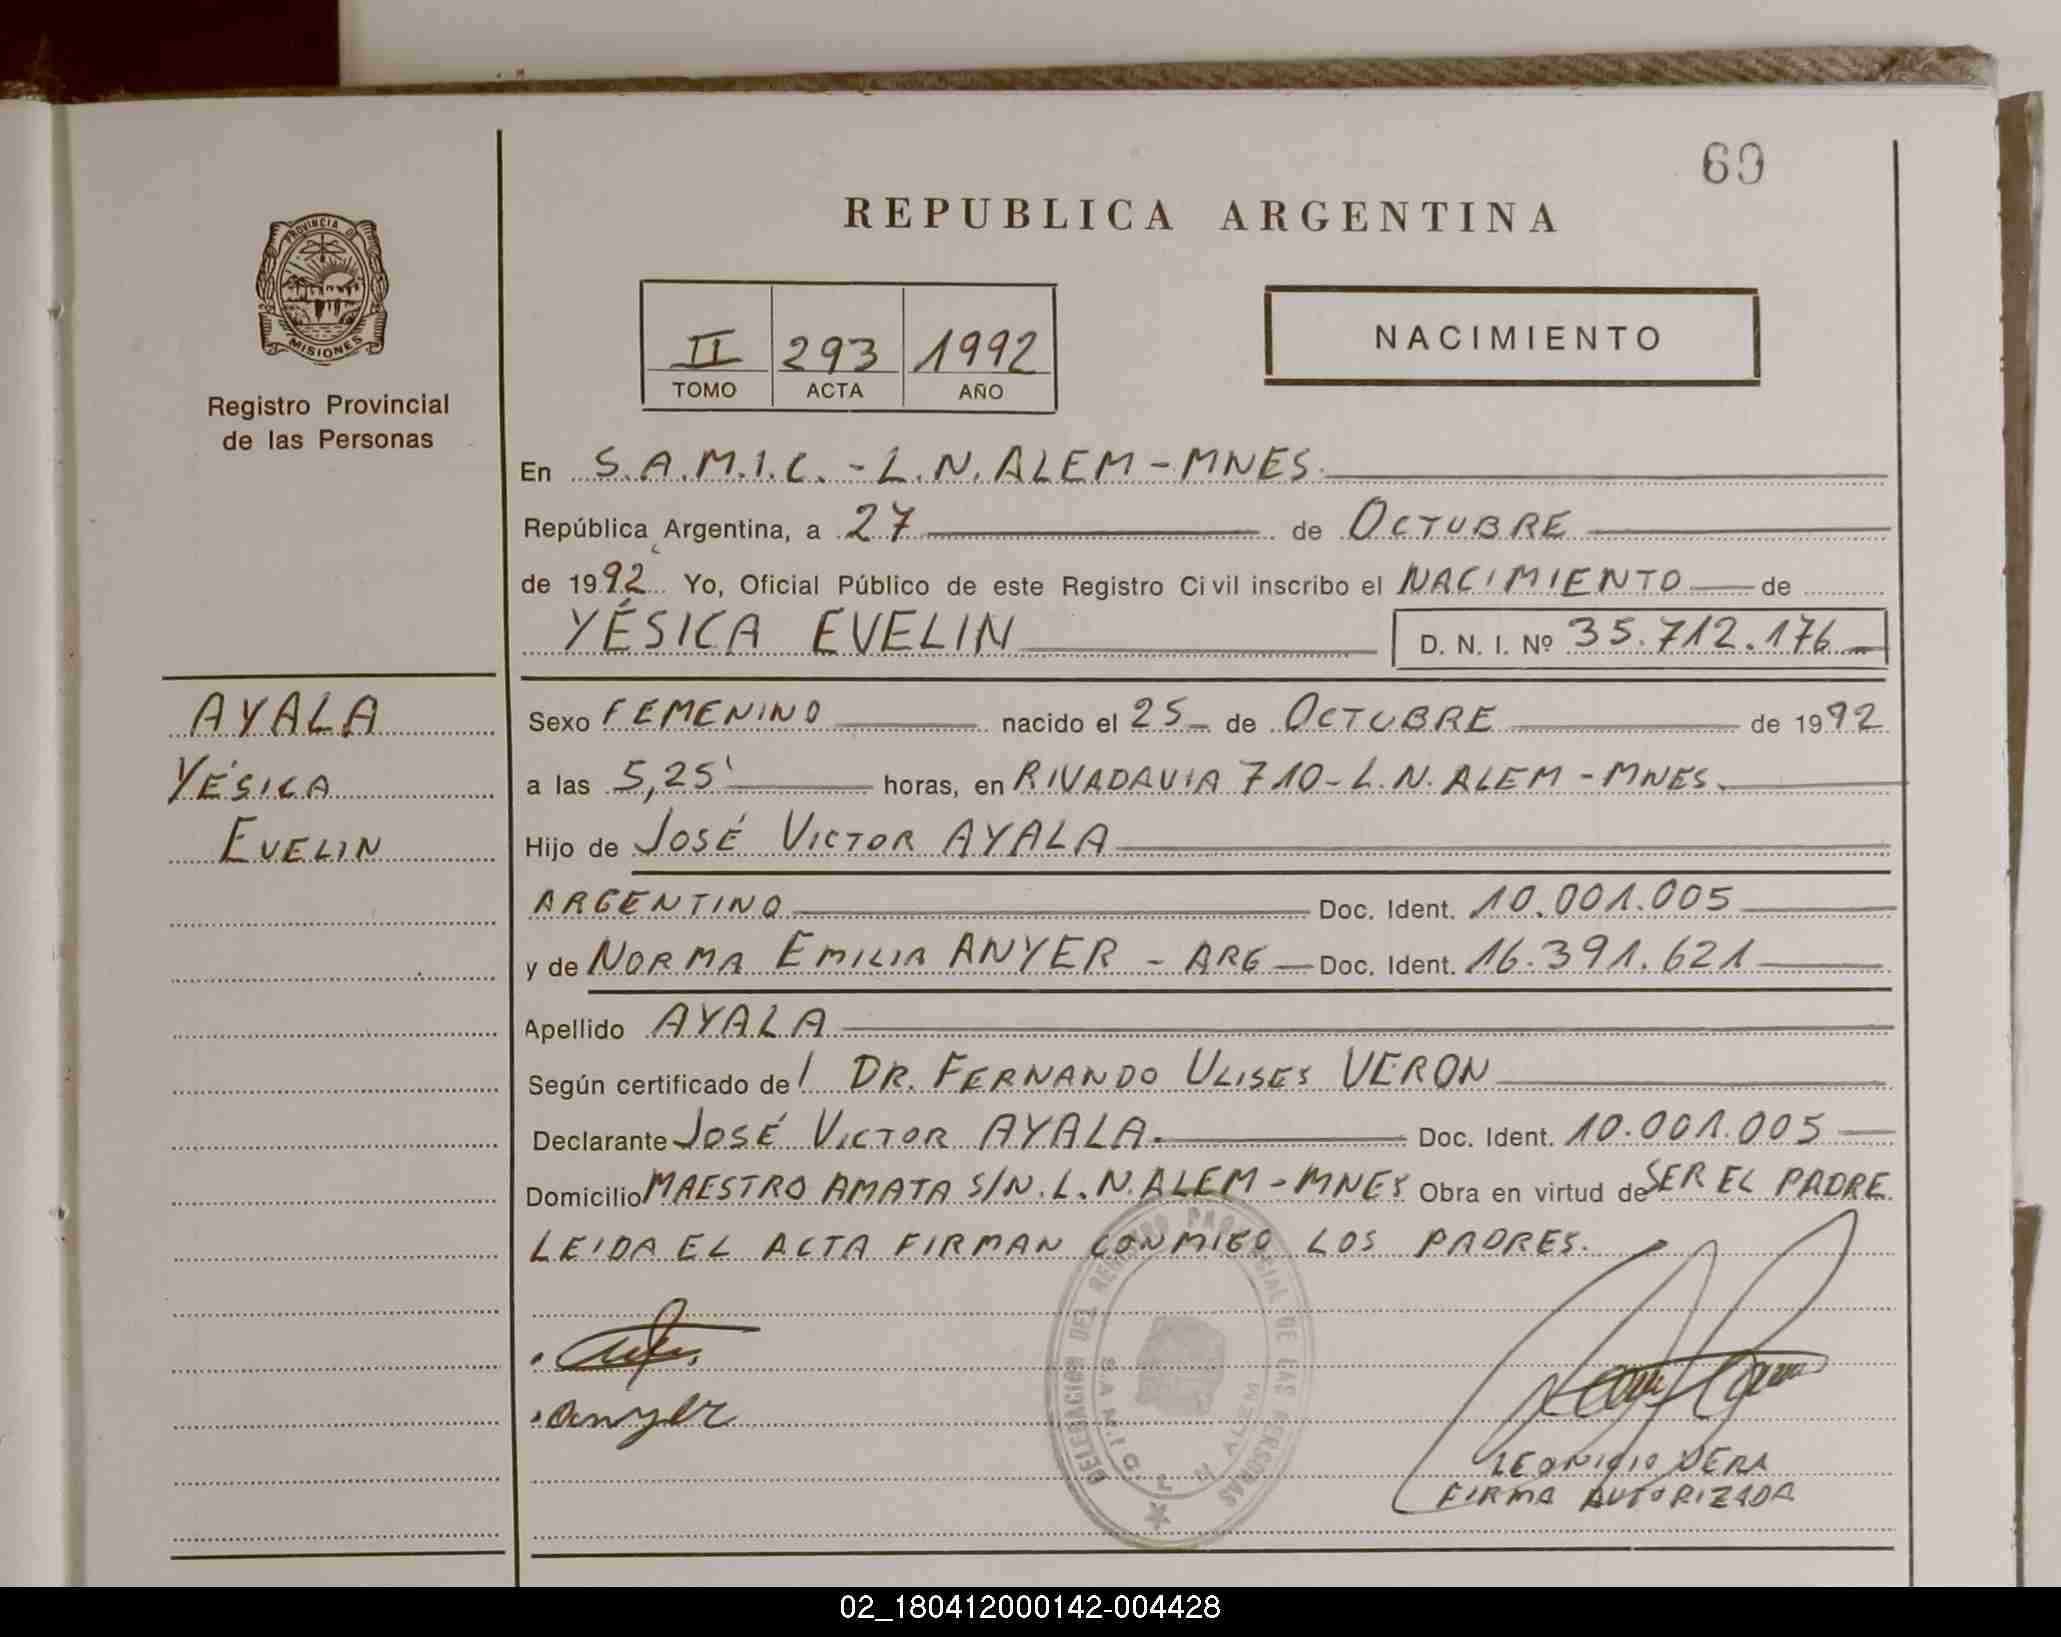 69
REPUBLICA ARGENTINA
PROVINCIA DE
MISIONES
Registro Provincial
de las Personas
II 293 1992
TOMO ACTA AÑO
NACIMIENTO
En S.A.M.I.C. - L.N. ALEM - MNES.
República Argentina, a 27 de OCTUBRE
de 1992 Yo, Oficial Público de este Registro Civil inscribo el NACIMIENTO de
YÉSICA EVELIN D. N. I. Nº 35.712.176
AYALA
YÉSICA
EVELIN
Sexo FEMENINO nacido el 25 de OCTUBRE de 1992
a las 5,25' horas, en RIVADAVIA 710 - L.N. ALEM - MNES.
Hijo de JOSÉ VICTOR AYALA
ARGENTINO Doc. Ident. 10.001.005
y de NORMA EMILIA ANYER - ARG Doc. Ident. 16.391.621
Apellido AYALA
Según certificado de DR. FERNANDO ULISES VERON
Declarante JOSÉ VICTOR AYALA. Doc. Ident. 10.001.005
Domicilio MAESTRO AMATA S/N. L.N. ALEM - MNES Obra en virtud de SER EL PADRE
LEIDA EL ACTA FIRMAN CONMIGO LOS PADRES.
DELEGACION DEL REGISTRO PROVINCIAL DE LAS PERSONAS
S.A.M.I.C. L. N. ALEM
Anyer
LEONICIO VERA
FIRMA AUTORIZADA
02_180412000142-004428